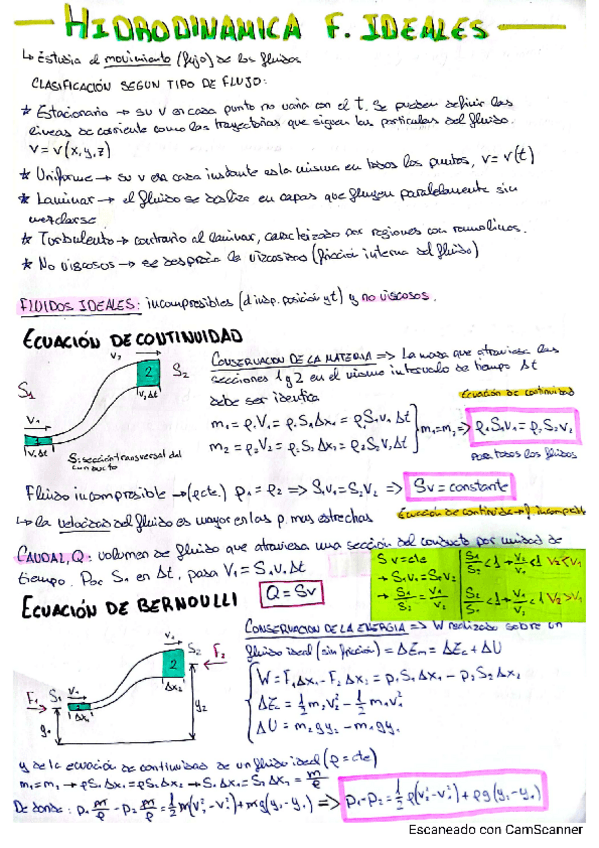 HIDRODINAMICA F. IDEALES
↳ Estudia el movimiento (flujo) de los fluidos
CLASIFICACIÓN SEGUN TIPO DE FLUJO:
★ Estacionario → su v en cada punto no varia con el t. Se pueden definir las
lineas de corriente como las trayectorias que siguen las particulas del fluido.
v = v(x,y,z)
★ Uniforme → su v en cada instante es la misma en todos los puntos, v = v(t)
★ Laminar → el fluido se desliza en capas que fluyen paralelamente sin
mezclarse
★ Turbulento → contrario al laminar, caracterizado por regiones con remolinos.
★ No viscosos → se desprecia la viscosidad (fricción interna del fluido)
FLUIDOS IDEALES: incompresibles (d indp. posición y t) y no viscosos.
ECUACIÓN DE CONTINUIDAD
CONSERVACION DE LA MATERIA => La masa que atraviesa las
secciones 1 y 2 en el mismo intervalo de tiempo Δt
debe ser identica
Ecuación de continuidad
S₁
V₁
V₁Δt
1
V₂
2
S₂
V₂Δt
S: sección transversal del
conducto
m₁ = ρ₁V₁ = ρ₁S₁Δx₁ = ρ₁S₁v₁Δt
m₂ = ρ₂V₂ = ρ₂S₂Δx₂ = ρ₂S₂v₂Δt
m₁=m₂ => ρ₁S₁v₁ = ρ₂S₂v₂
para todos los fluidos
Fluido incompresible → (ρ cte.) ρ₁ = ρ₂ => S₁v₁ = S₂v₂ => Sv = constante
↳ la velocidad del fluido es mayor en las p. mas estrechas
Ecuación de continuidad → f. incompresible
CAUDAL, Q: volumen de fluido que atraviesa una sección del conducto por unidad de
tiempo. Por S₁ en Δt, pasa V₁ = S₁v₁Δt
Q = Sv
Sv = cte
→ S₁v₁ = S₂v₂
→ S₁/S₂ = v₂/v₁
S₁/S₂ < 1 → v₂/v₁ < 1 v₂ < v₁
S₂/S₁ < 1 → v₁/v₂ < 1 v₂ > v₁
ECUACIÓN DE BERNOULLI
CONSERVACION DE LA ENERGIA => W realizado sobre un
fluido ideal (sin fricción) = ΔEm = ΔEc + ΔU
F₁
S₁
V₁
1
Δx₁
y₁
2
S₂
F₂
Δx₂
y₂
W = F₁Δx₁ - F₂Δx₂ = p₁S₁Δx₁ - p₂S₂Δx₂
ΔEc = ½ m₂v₂² - ½ m₁v₁²
ΔU = m₂gy₂ - m₁gy₁
y de la ecuación de continuidad de un fluido ideal (ρ = cte)
m₁=m₂ → ρS₁Δx₁ = ρS₂Δx₂ → S₁Δx₁ = S₂Δx₂ = m/ρ
De donde: p₁ m/ρ - p₂ m/ρ = ½ m(v₂²-v₁²) + mg(y₂-y₁) => p₁-p₂ = ½ ρ(v₂²-v₁²) + ρg(y₂-y₁)
Escaneado con CamScanner